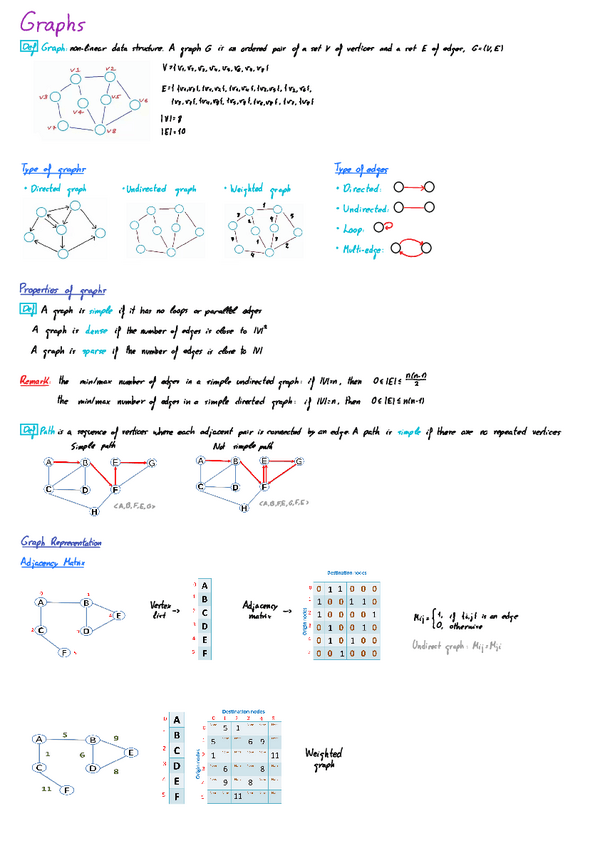 Graphs
Def Graph: non-linear data structure. A graph G is an ordered pair of a set V of vertices and a set E of edges, G=(V,E)
v1 v2
v3 v4 v5 v6
v7 v8
|V|=8
|E|=10
Type of graphs
Type of edges
• Directed graph • Undirected graph • Weighted graph
• Directed:
• Undirected:
• Loop:
• Multi-edge:
Properties of graphs
Def A graph is simple if it has no loops or parallel edges
A graph is dense if the number of edges is close to |V|²
A graph is sparse if the number of edges is close to |V|
Remark: the min/max number of edges in a simple undirected graph: if |V|=n, then 0≤|E|≤ n(n-1)/2
the min/max number of edges in a simple directed graph: if |V|=n, then 0≤|E|≤n(n-1)
Def Path is a sequence of vertices where each adjacent pair is connected by an edge. A path is simple if there are no repeated vertices
Simple path Not simple path
A B E G
C D F
H
<A,B,F,E,G>
A B E G
C D F
H
<A,B,F,E,G,F,E>
Graph Representation
Adjacency Matrix
A B E
C D
F
Vertex list →
0 A
1 B
2 C
3 D
4 E
5 F
Adjacency matrix →
Destination nodes
Origin nodes
0 1 1 0 0 0
1 0 0 1 1 0
1 0 0 0 0 1
0 1 0 0 1 0
0 1 0 1 0 0
0 0 1 0 0 0
Mij = { 1, if {i,j} is an edge
0, otherwise
Undirect graph: Mij=Mji
A 5 B 9 E
1 6 8
C D
11 F
0 A
1 B
2 C
3 D
4 E
5 F
Destination nodes
Origin nodes
5 1
5 6 9
1 11
6 8
9 8
11
Weighted graph